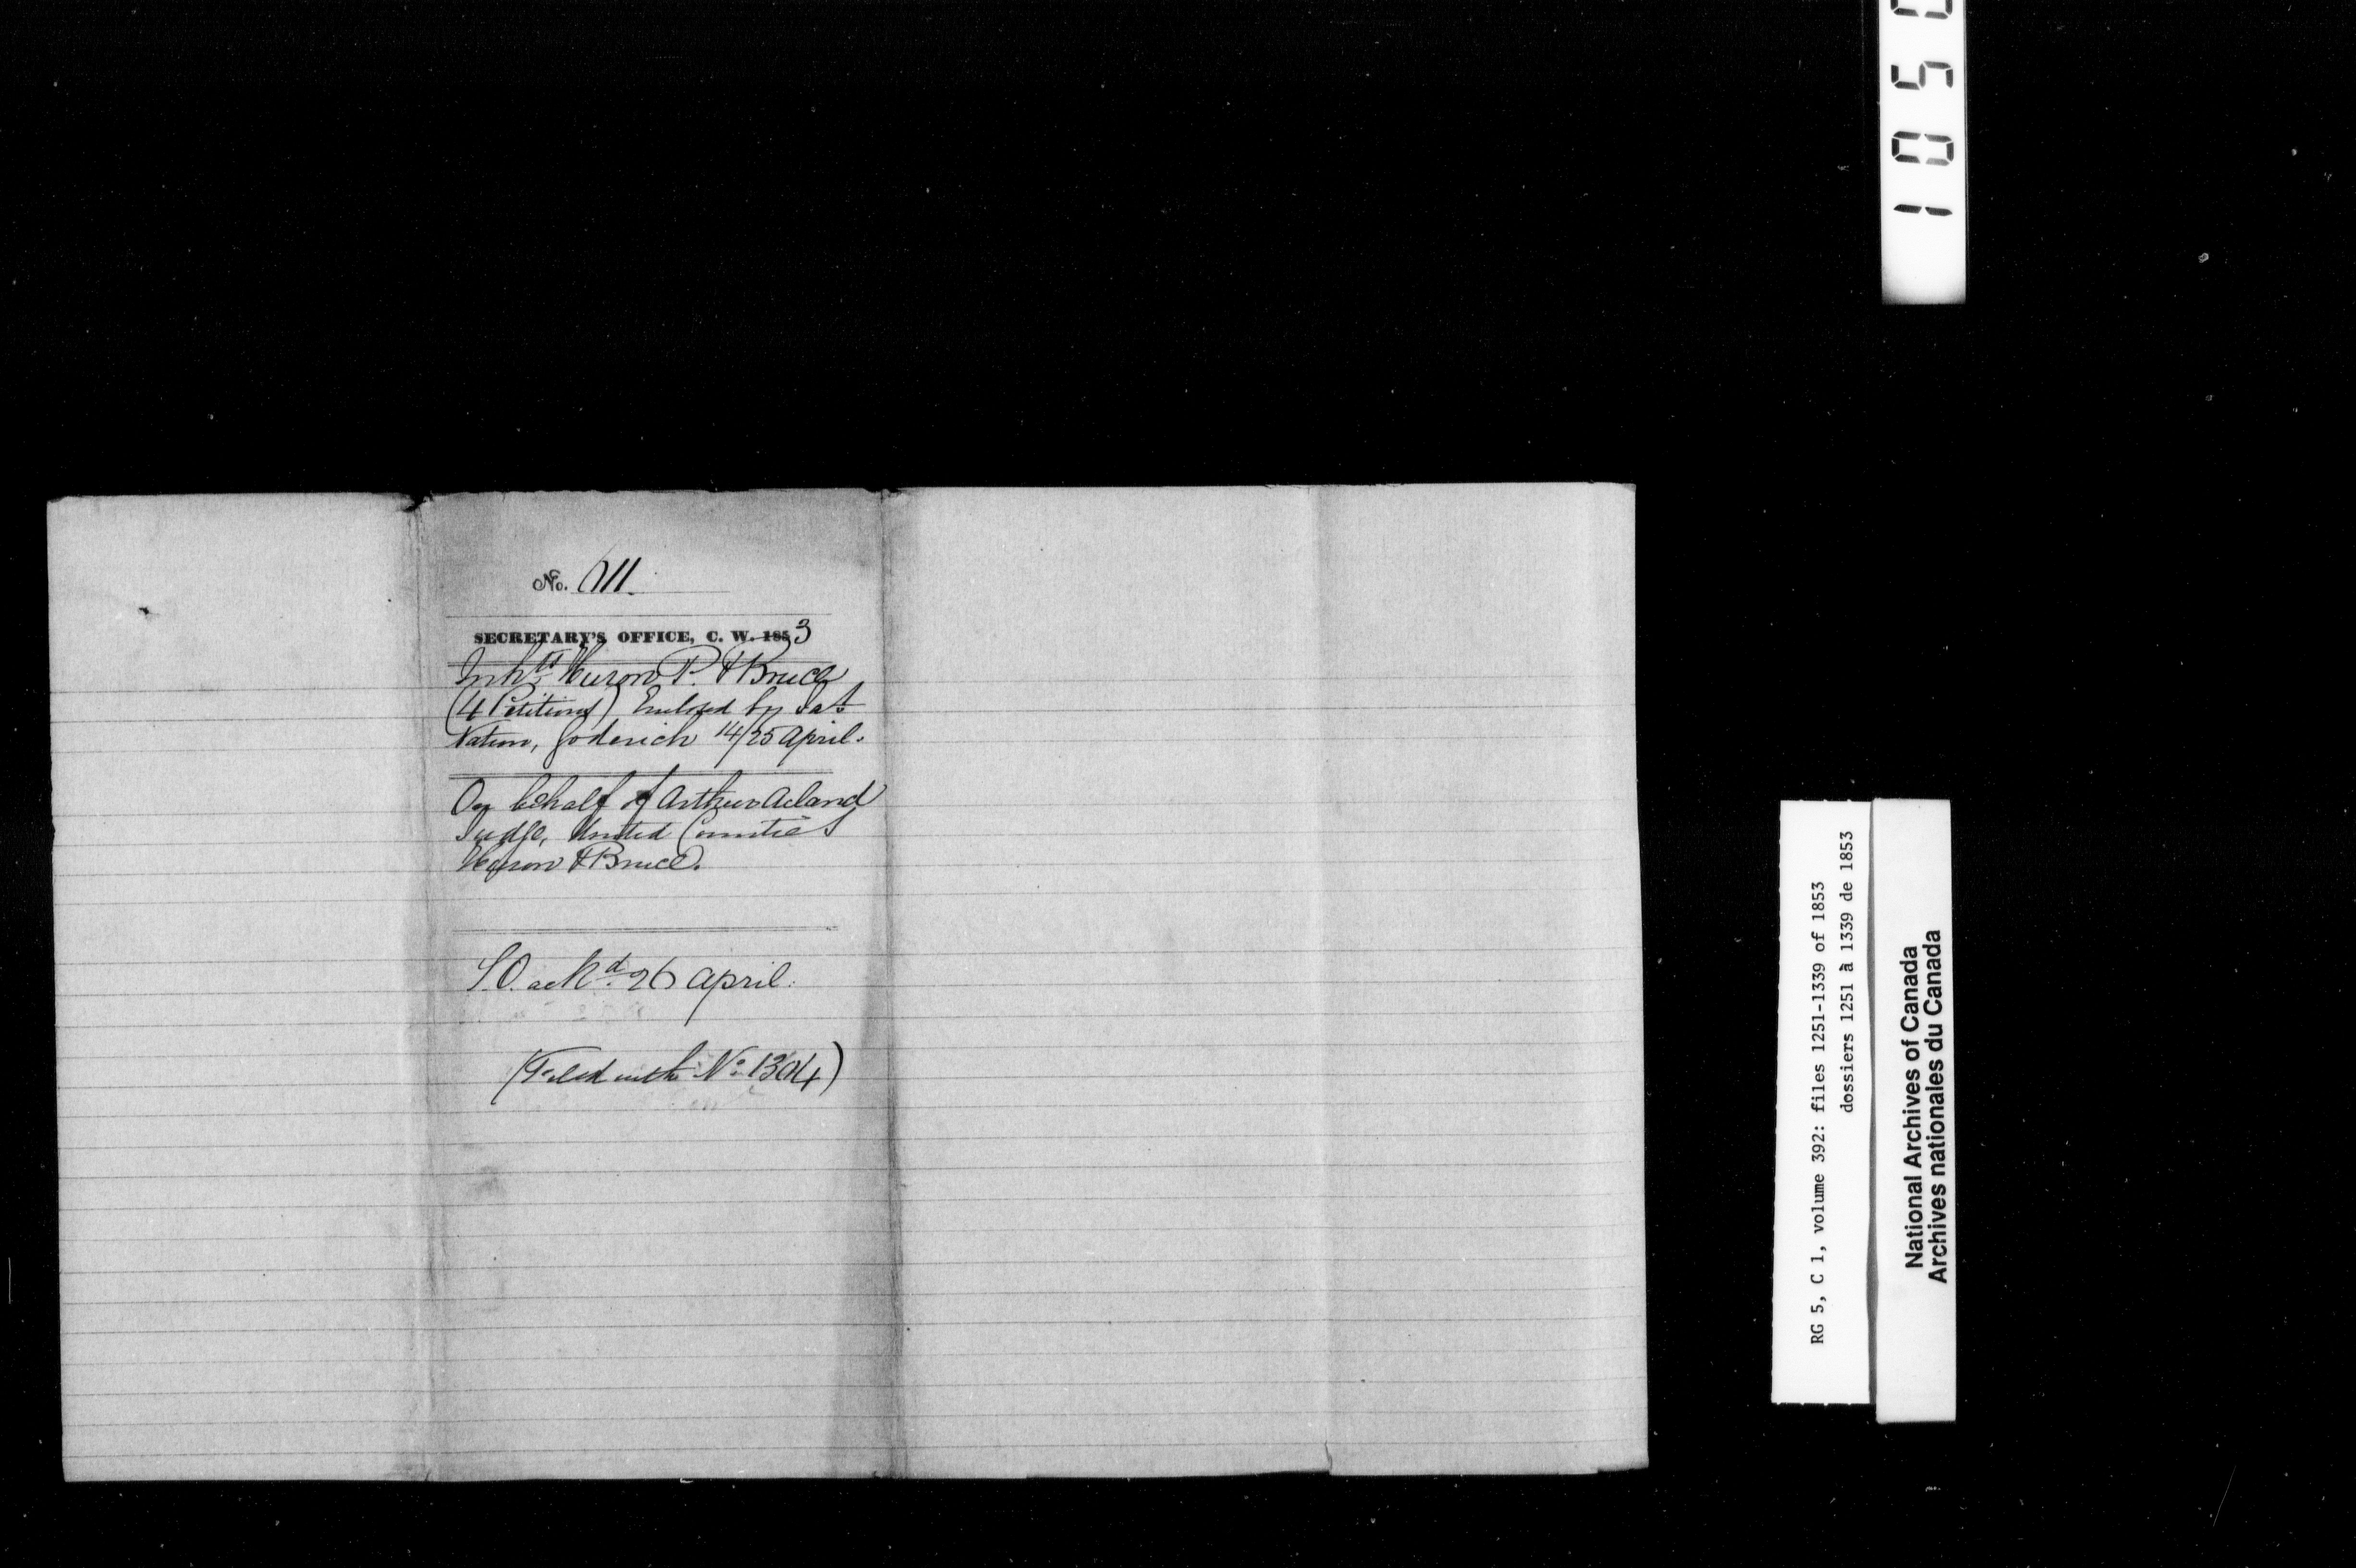 No. 611.
SECRETARY'S OFFICE, C. W. 1853
Inhts Huron P. & Bruce
(4 Petitions) Enclosed by Jas
Watson, Goderich 14/25 April.
On behalf of Arthur Acland
Judge, United Counties
Huron & Bruce.
S.O. ackd. 26 April.
(Filed with No. 1304)
1050
RG 5, C 1, volume 392: files 1251-1339 of 1853
dossiers 1251 à 1339 de 1853
National Archives of Canada
Archives nationales du Canada